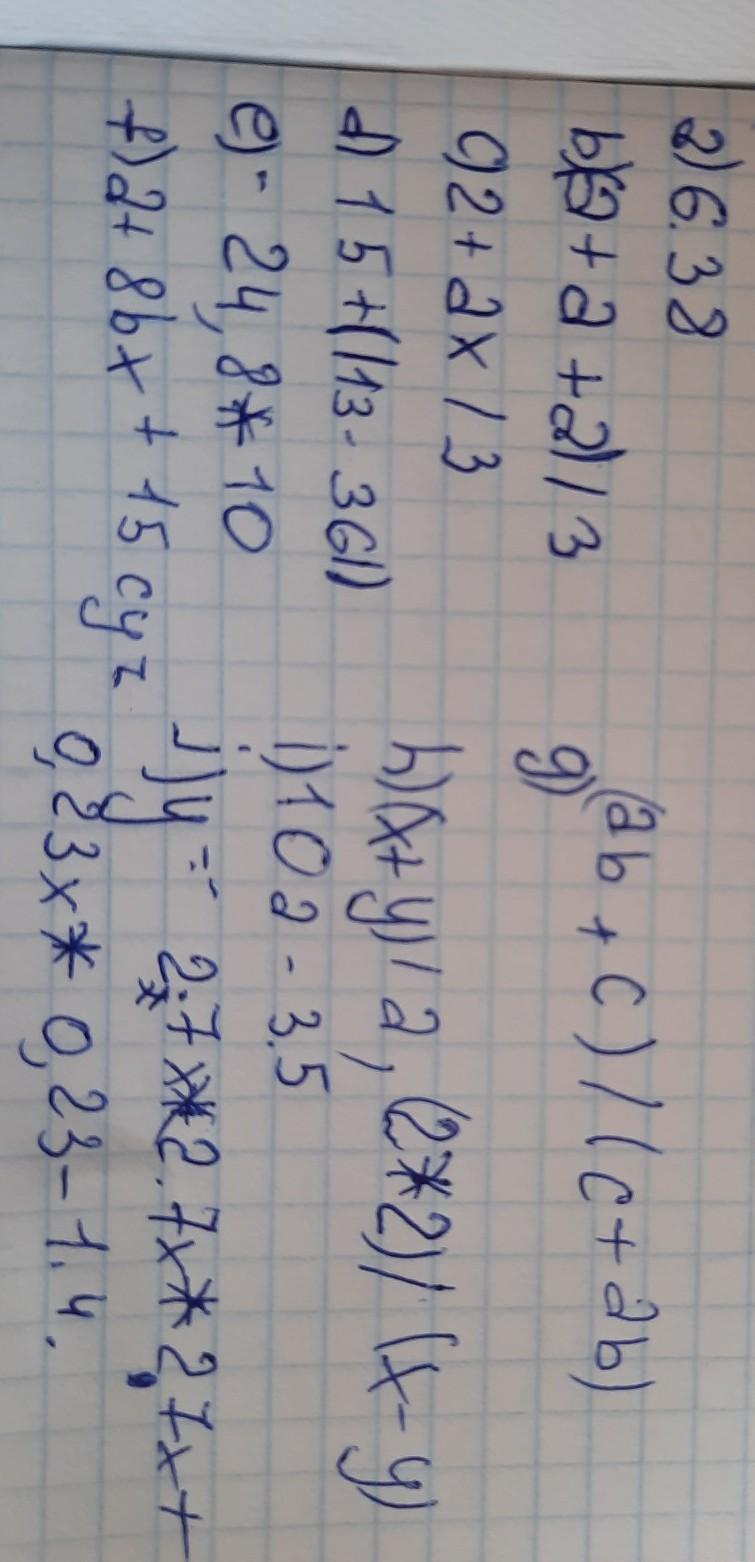 a) 6.3a
b) (a + a + a) / 3
c) 2 + ax / 3
d) 15 + (|13 - 36|)
e) - 24,8 * 10
f) a + 8bx + 15cyz
g) (ab + c) / (c + ab)
h) (x + y) / a, (2 * 2) / (x - y)
i) 10a - 3.5
j) y = 2.7x * 2.7x * 2.7x +
0,23x * 0,23 - 1.4.